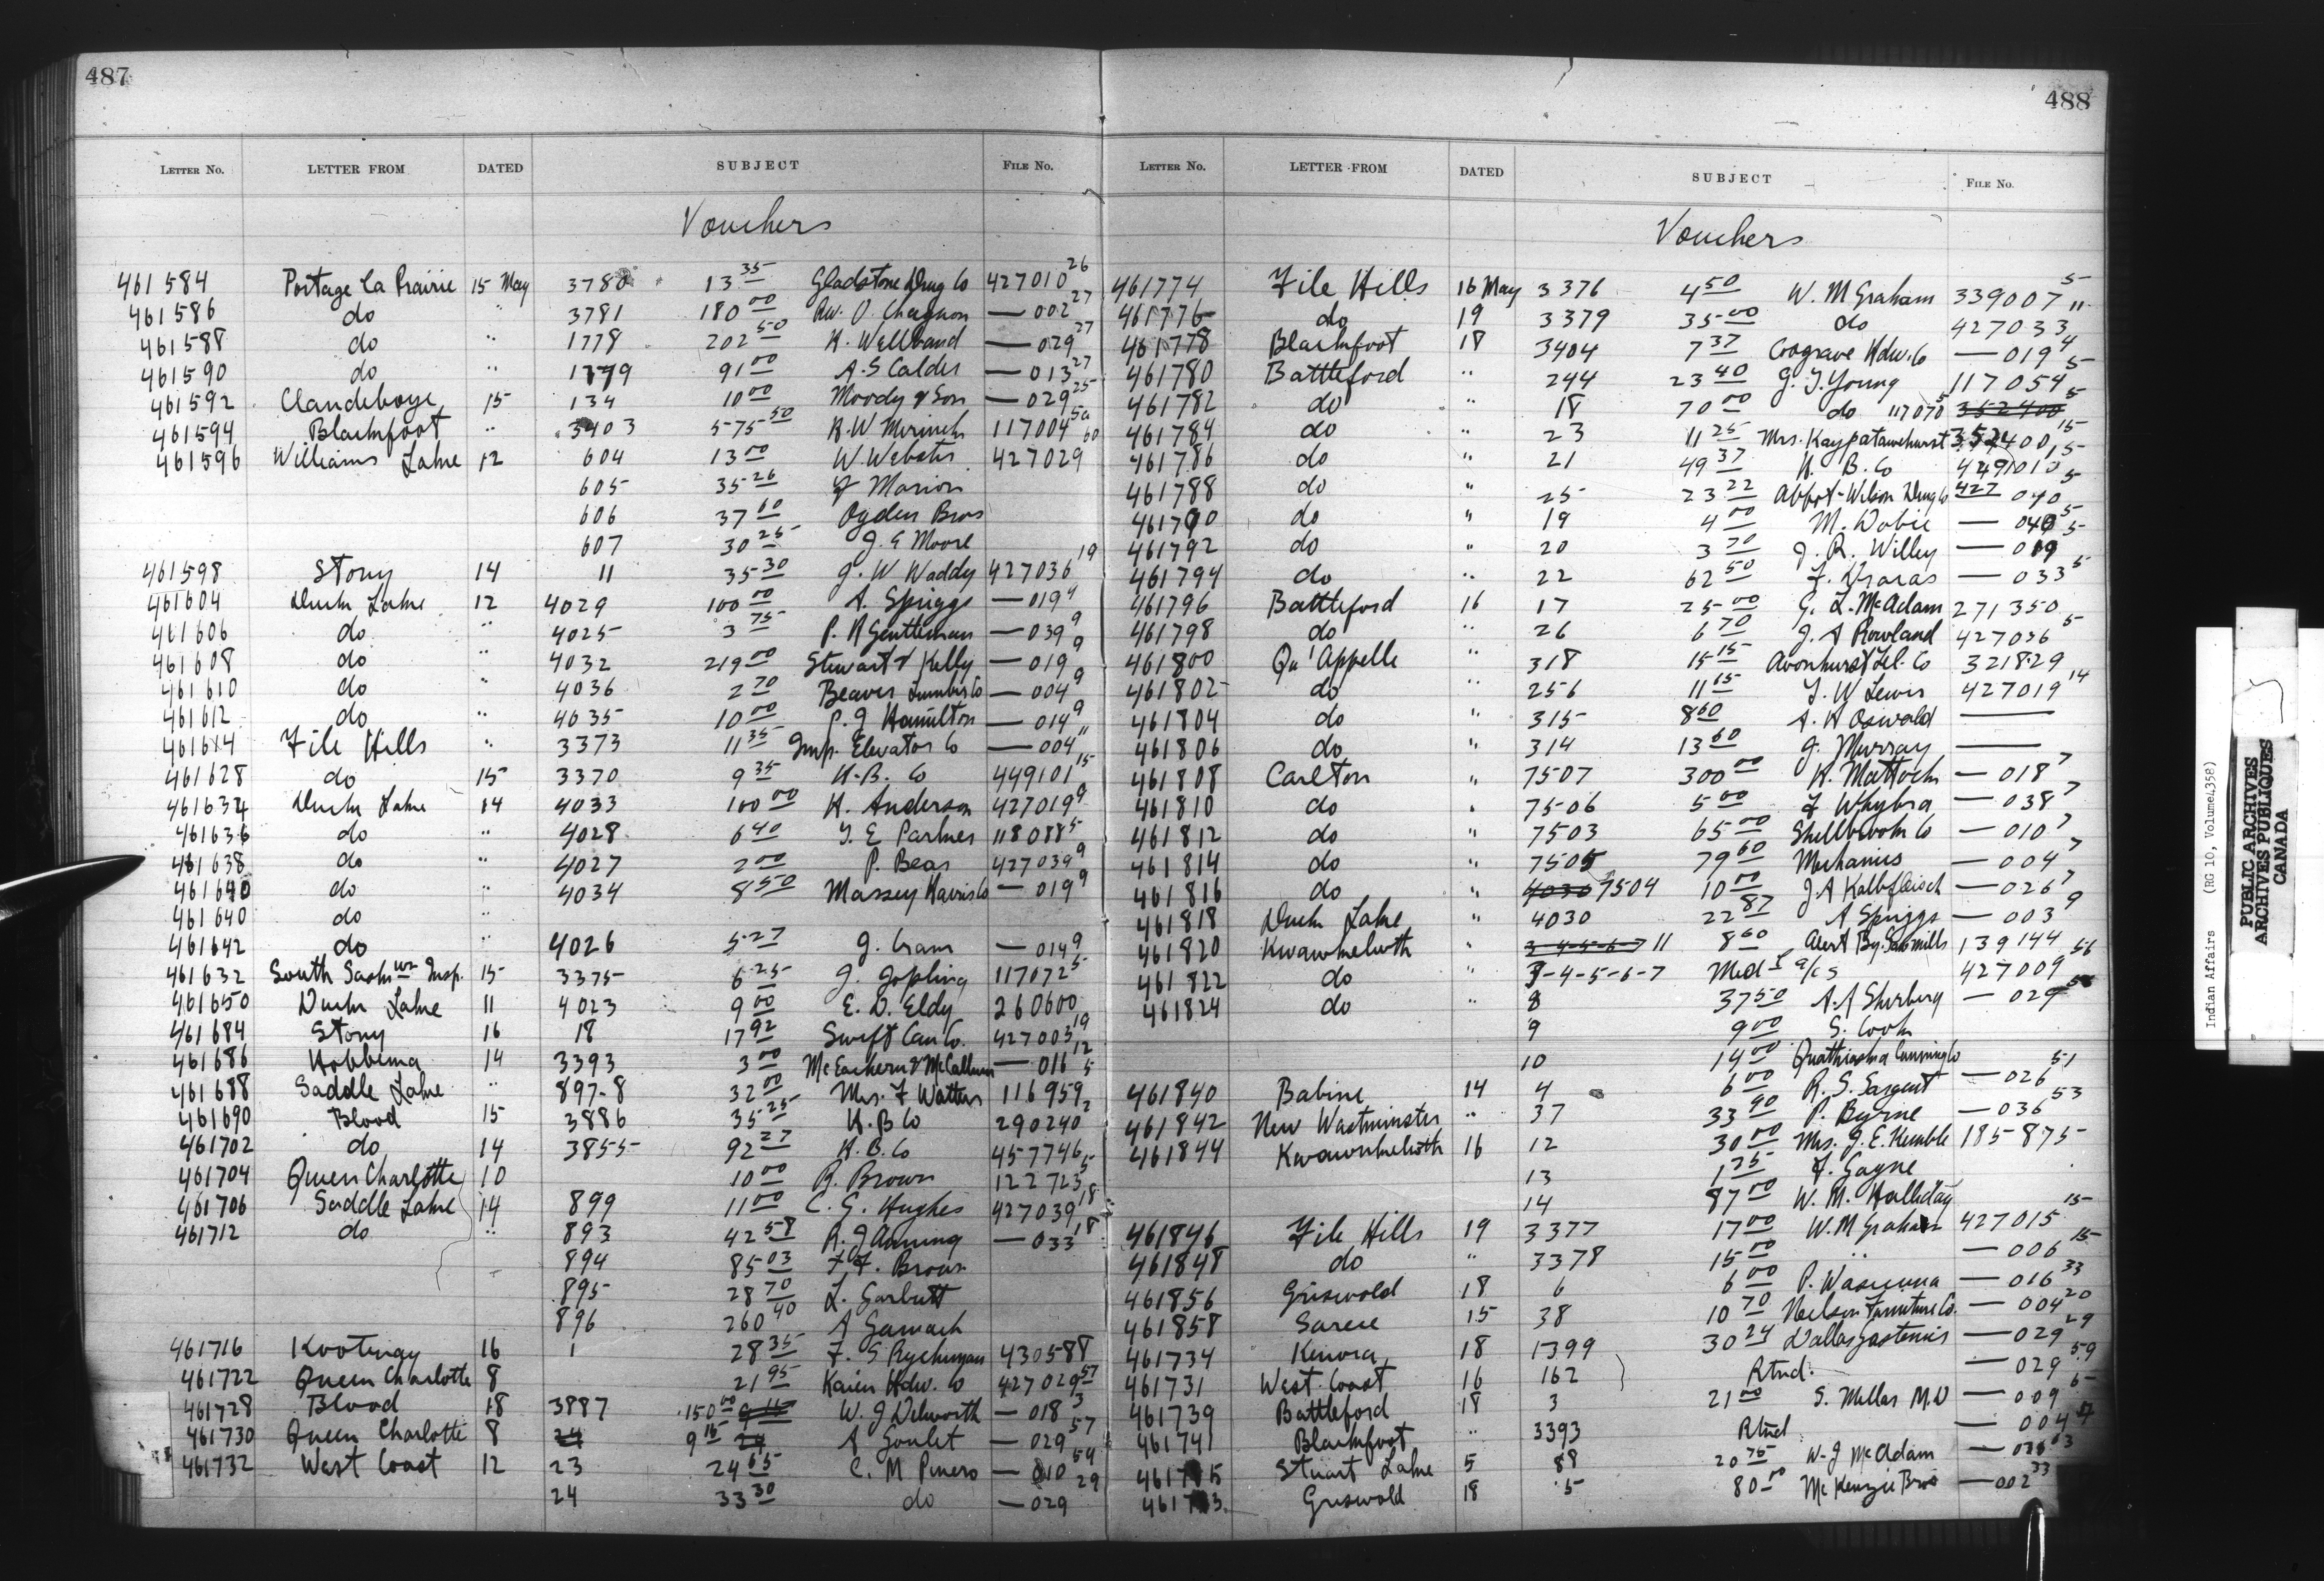 487
LETTER No. LETTER FROM DATED SUBJECT FILE No.
Vouchers
461584 Portage La Prairie 15 May 3780 13 35 Gladstone Drug Co 427010 26
461586 do " 3781 180 00 Rev. O. Chagnon — 002 27
461588 do " 1778 202 50 H. Wellband — 029 27
461590 do " 1779 91 00 A. S Calder — 013 27
461592 Clandeboye 15 134 10 00 Moody & Son — 029 25
461594 Blackfoot " 3403 575 50 117004 50
461596 Williams Lake 12 604 13 00 W. Webster 427029 60
605 35 26 F Marion
606 37 60 Ogden Bros
607 30 25 J. E Moore
461598 Stony 14 11 35 30 J. W Waddy 427036 19
461604 Duck Lake 12 4029 100 00 A. Spriggs — 019 9
461606 do " 4025 3 75 P. H Gentleman — 039 9
461608 do " 4032 219 00 Stewart & Kelly — 019 9
461610 do " 4036 2 70 Beaver Lumber Co — 004 9
461612 do " 4035 10 00 P. J Hamilton — 014 9
461614 File Hills " 3373 11 35 Imp. Elevator Co — 004 11
461628 do 15 3370 9 35 H. B. Co 449101 15
461634 Duck Lake 14 4033 100 00 H. Anderson 427019 9
461636 do " 4028 6 40 T. E Parker 118088 5
461638 do " 4027 2 00 P. Bear 427039 9
461640 do " 4034 8 50 Massey Harris Co — 019 9
461640 do "
461642 do " 4026 5 27 J. Cram — 014 9
461632 South Saskwn Insp. 15 3375 6 25 J. Jopling 117072 5
461650 Duck Lake 11 4023 9 00 E. D. Eldy 260600
461684 Stony 16 18 17 92 Swift Can Co. 427003 19
461686 Hobbema 14 3393 3 00 McEachern & McCallum — 016 12
461688 Saddle Lake " 897-8 32 00 Mrs. F Watters 116959 5
461690 Blood 15 3886 35 25 H. B Co 290240 2
461702 do 14 3855 92 27 H. B. Co 457746
461704 Queen Charlotte 10 10 00 R. Brown 122723 5
461706 Saddle Lake 14 899 11 00 C. G. Hughes 427039 18
461712 do " 893 42 58 R. J Anning — 033 18
894 85 03 F. F. Brown
895 28 70 L. Garbutt
896 260 40 A Gamach
461716 Kootenay 16 1 28 35 F. S Ryckman 430588
461722 Queen Charlotte 8 21 95 Kaien Hdw. Co 427029 57
461728 Blood 18 3887 150 00 W. J Dilworth — 018 3
461730 Queen Charlotte 8 24 9 15 24 A Goulet — 029 57
461732 West Coast 12 23 24 65 C. M Pinero — 010 59
24 33 30 do — 029 29
488
LETTER No. LETTER FROM DATED SUBJECT FILE No.
Vouchers
461774 File Hills 16 May 3376 4 50 W. M Graham 339007 5
461776 do 19 3379 35 00 do 427033 11
461778 Blackfoot 18 3404 7 37 Cosgrave Hdw. Co — 019 4
461780 Battleford " 244 23 40 G. J. Young 117054 5
461782 do " 18 70 00 do 117070 5 352400
461784 do " 23 11 25 Mrs. Kaypatawehurst 352400 15
461786 do " 21 49 37 H. B. Co 15
461788 do " 25 23 22 Abbot-Wilson Drug Co 427 040 5
461790 do " 19 4 00 M. Dobie — 040 5
461792 do " 20 3 70 J. R. Willey — 019 5
461794 do " 22 62 50 F. Kraras — 033 5
461796 Battleford 16 17 25 00 G. L. McAdam 271350
461798 do " 26 6 70 J. A Rowland 427036 5
461800 Qu'Appelle " 318 15 15 Avonhurst Tel. Co 321829
461802 do " 256 11 15 F. W Lewis 427019 14
461804 do " 315 8 60 A. H Oswald —
461806 do " 314 13 60 J. Murray —
461808 Carlton " 7507 300 00 H. Mattock — 018 7
461810 do " 7506 5 00 F Whybra — 038 7
461812 do " 7503 65 00 Shellbrook Co — 010 7
461814 do " 7505 79 60 Mechanics — 004 7
461816 do " 4036 7504 10 00 J. A Kalbfleisch — 026 7
461818 Duck Lake " 4030 22 87 A Spriggs — 003 9
461820 Kwawkewlth " 3-4-5-6-7 11 8 60 Alert By. Sawmills 139144
461822 do " 3-4-5-6-7 Medl a/cs 427009 56
461824 do " 8 37 50 A. A Sherberg — 029 56
9 9 00 S. Cook
10 14 00 Quathiaska Canning Co
461840 Babine 14 4 6 00 R. S. Sargent — 026 51
461842 New Westminster " 37 33 90 P. Byrne — 036 53
461844 Kwawkewlth 16 12 30 00 Mrs. J. E. Kemble 185875
13 1 75 F. Gagne
14 87 00 W. M. Halliday
461846 File Hills 19 3377 17 00 W. M Graham 427015 15
461848 do " 3378 15 00 " — 006 15
461856 Griswold 18 6 6 00 P. Wasicuna — 016 33
461858 Sarcee 15 38 10 70 Neilson Furniture Co. — 004 20
461734 Kenora 18 1399 30 24 Dallas Gastenis — 029 29
461731 West Coast 16 162 Rtnd. — 029 59
461739 Battleford 18 3 21 00 S. Millar M. D — 009 5
461741 Blackfoot " 3393 Rtnd — 004 4
Stuart Lake 5 88 20 75 W. J McAdam
Griswold 18 5 80 00 McKenzie Bros — 002 33
Indian Affairs (RG 10, Volume 4358)
PUBLIC ARCHIVES
ARCHIVES PUBLIQUES
CANADA